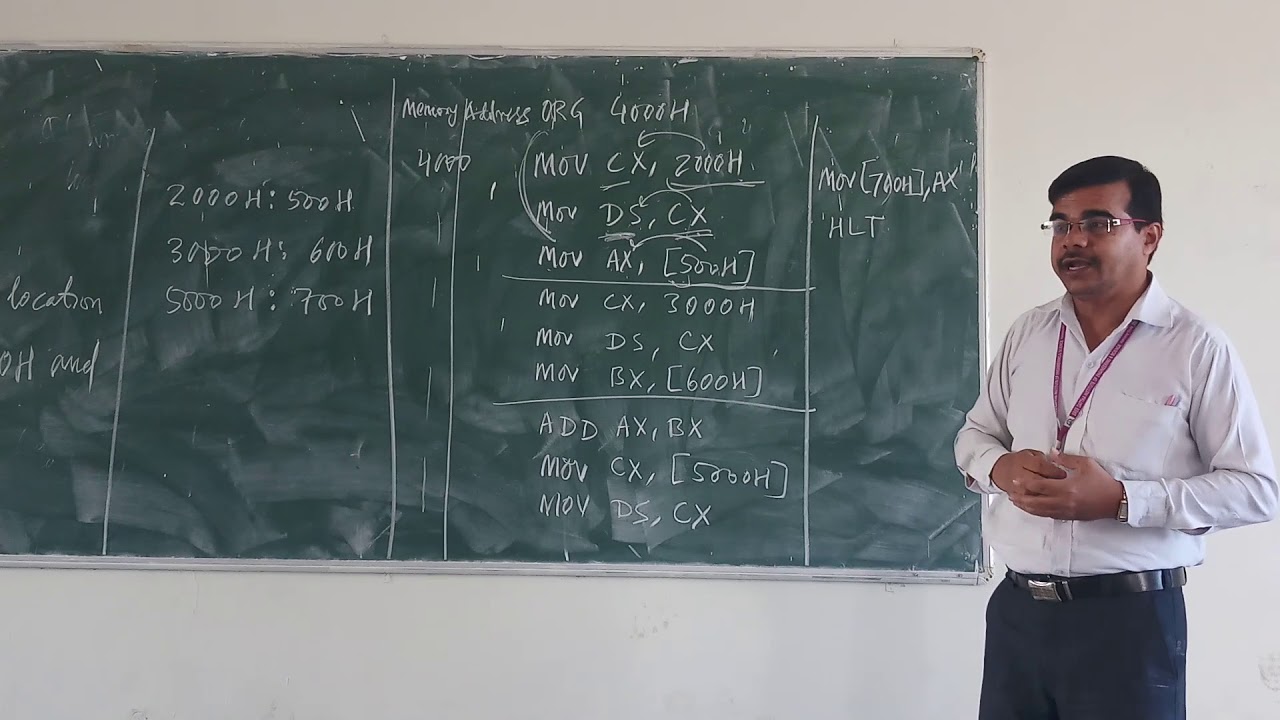 location
0H and
2000H: 500H
3000H: 600H
5000H: 700H
Memory Address
4000
ORG 4000H
MOV CX, 2000H
MOV DS, CX
MOV AX, [500H]
MOV CX, 3000H
MOV DS, CX
MOV BX, [600H]
ADD AX, BX
MOV CX, [5000H]
MOV DS, CX
MOV [700H], AX
HLT